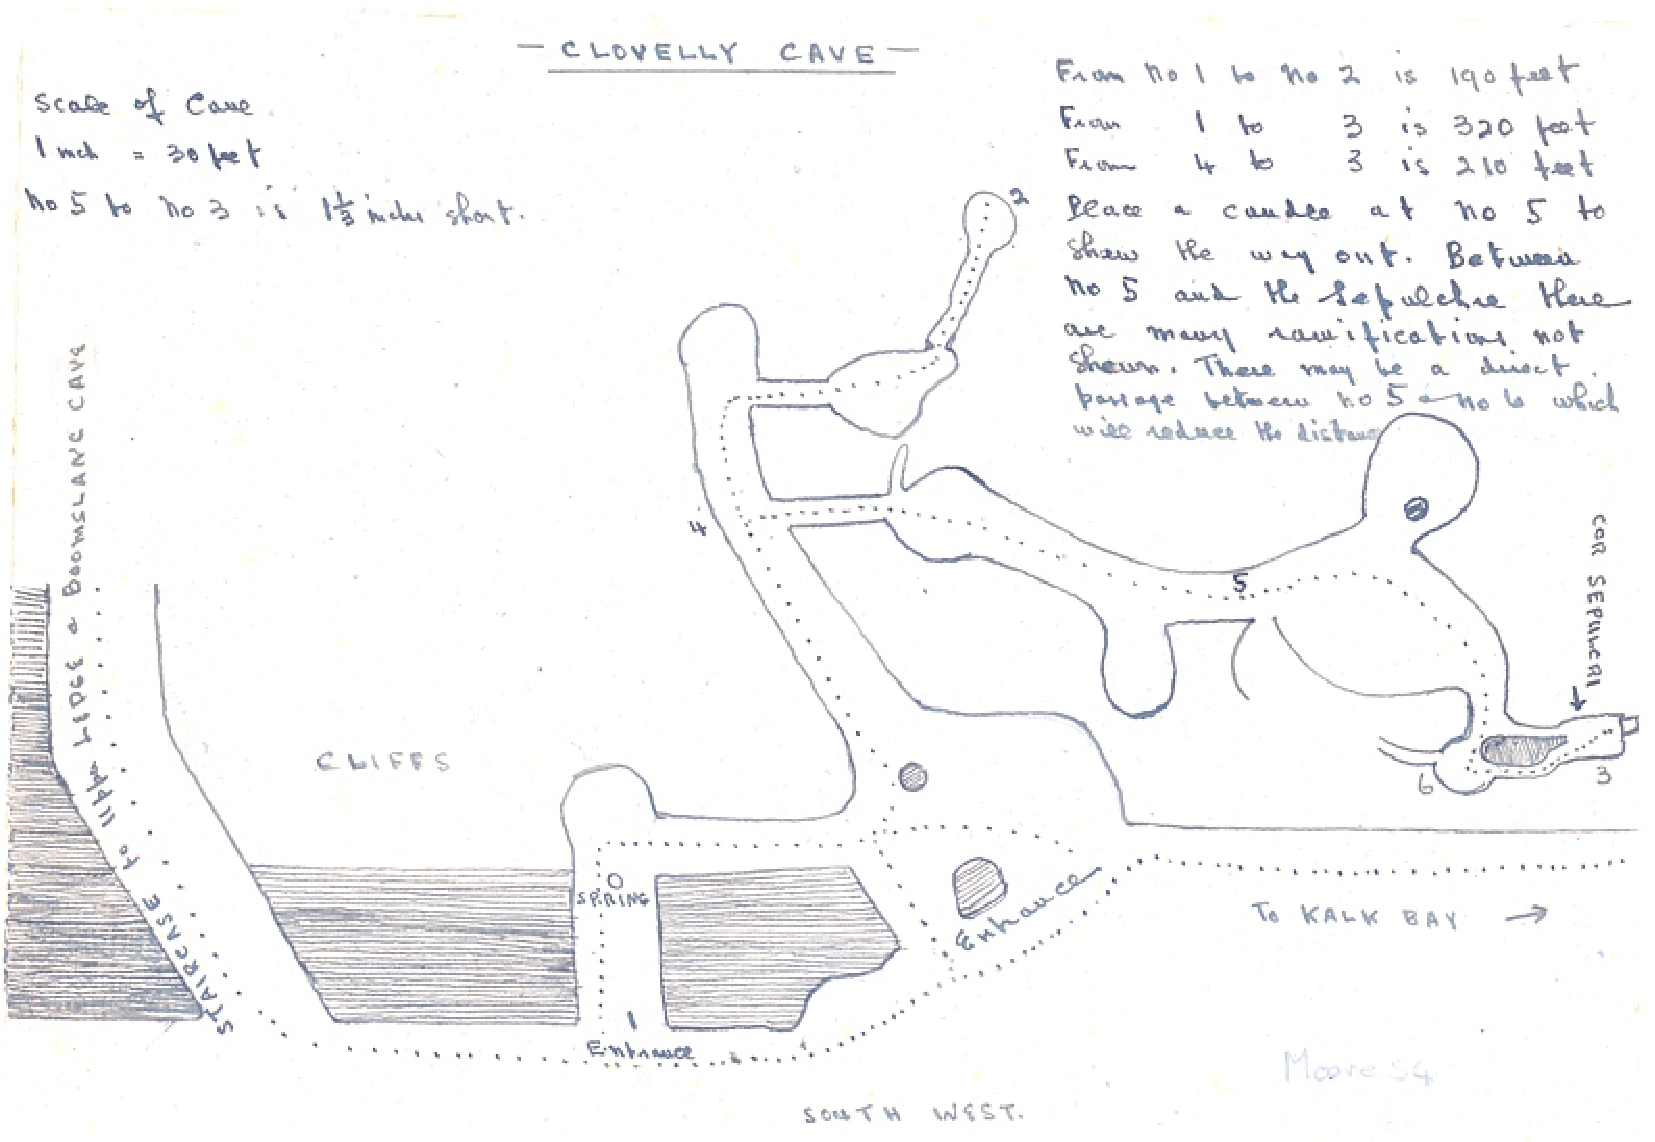 — CLOVELLY CAVE —
Scale of Cave
1 inch = 30 feet
No 5 to No 3 is 1⅓ inches short.
From No 1 to No 2 is 190 feet
From 1 to 3 is 320 feet
From 4 to 3 is 210 feet
Place a candle at No 5 to
shew the way out. Between
No 5 and the Sepulchre there
are many ramifications not
shewn. There may be a direct
passage between No 5 & No 6 which
will reduce the distance
2
4
5
COR SEPULCRI
6
3
STAIRCASE to Upper LEDGE & BOOMSLANG CAVE
CLIFFS
SPRING
Entrance
To KALK BAY →
1
Entrance
Moore 54
SOUTH WEST.